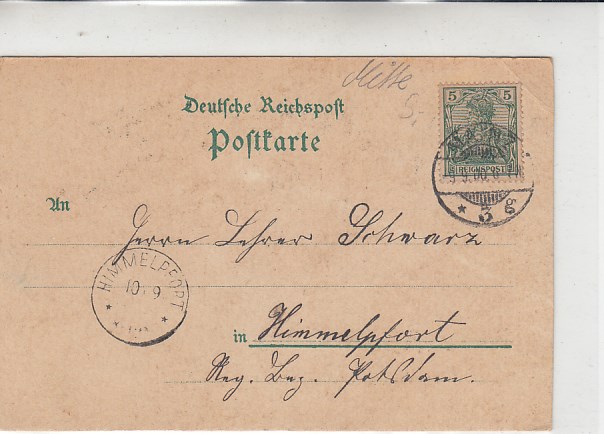 Mitte
5,-
Deutsche Reichspost
Postkarte
5 5
REICHSPOST
* 3 g
An
Herrn Lehrer Schwarz
HIMMELPFORT
10 9
in Himmelpfort
Reg. Bez. Potsdam.